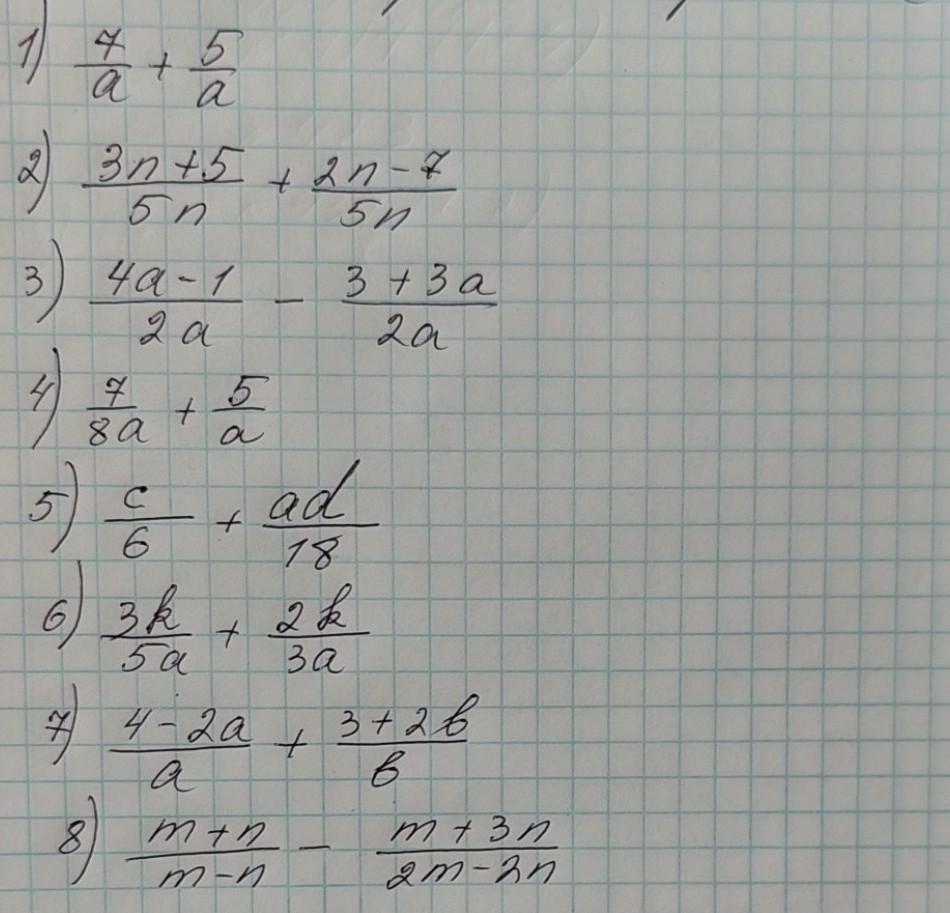 1) 7/a + 5/a
2) (3n+5)/(5n) + (2n-7)/(5n)
3) (4a-1)/(2a) - (3+3a)/(2a)
4) 7/(8a) + 5/a
5) c/6 + ad/18
6) 3k/(5a) + 2k/(3a)
7) (4-2a)/a + (3+2b)/b
8) (m+n)/(m-n) - (m+3n)/(2m-2n)